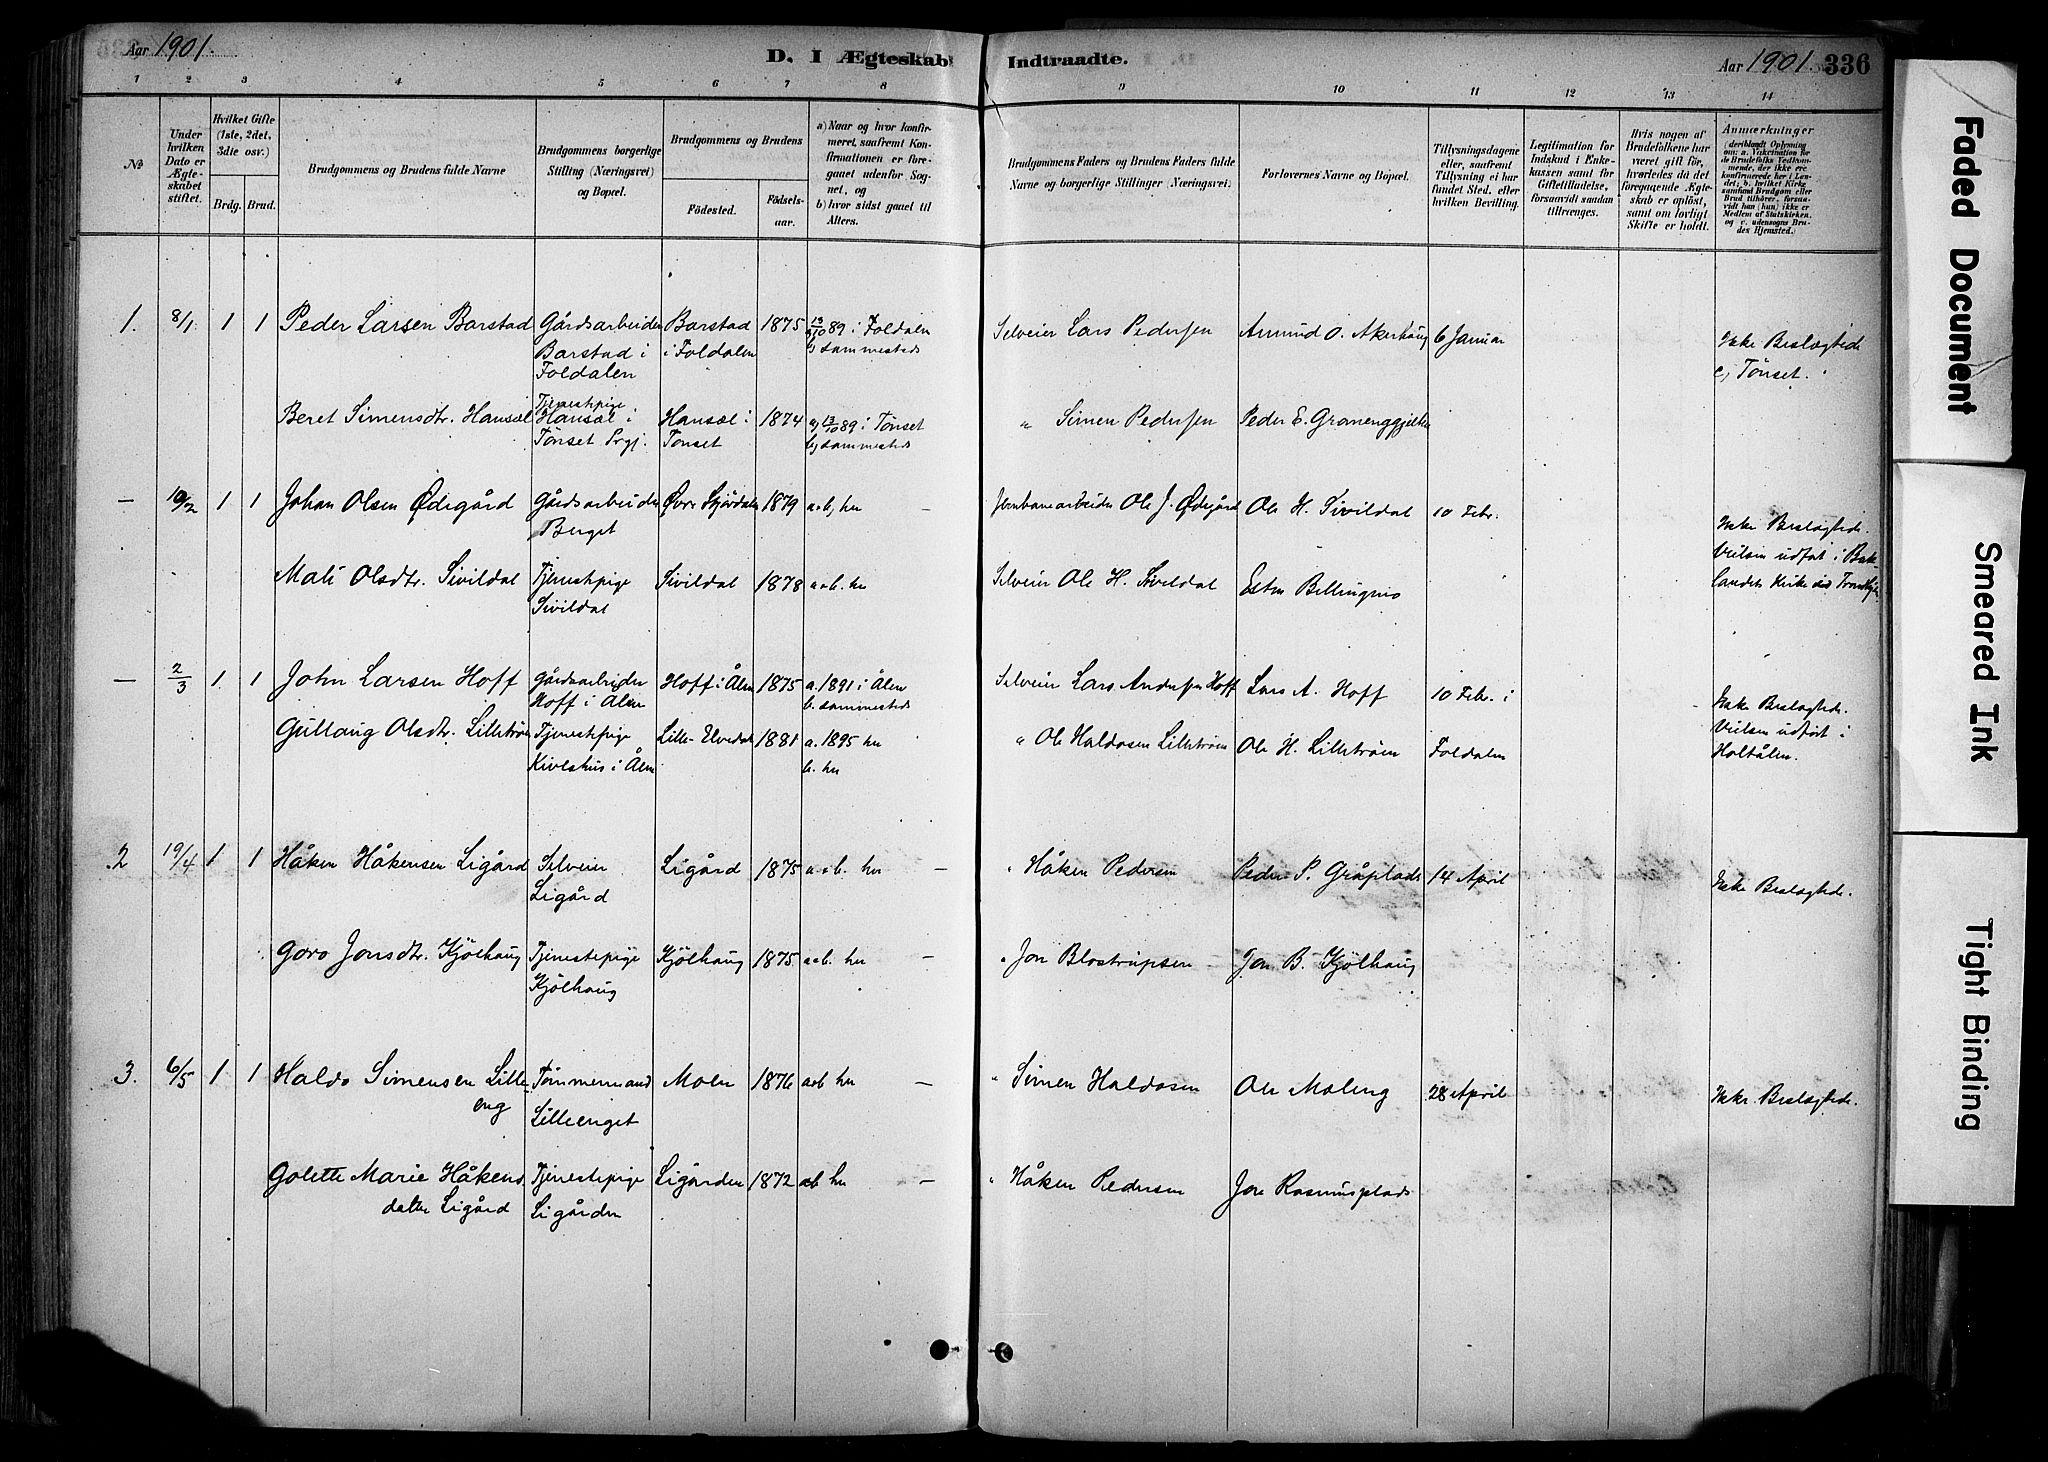 Aar 1901.
D. I Ægteskab Indtraadte.
Aar 1901. 336
1 2 3 4 5 6 7 8 9 10 11 12 13 14
No
Under hvilken Dato er Ægteskabet stiftet.
Hvilket Gifte (1ste, 2det, 3die osv.)
Brdg. Brud.
Brudgommens og Brudens fulde Navne
Brudgommens borgerlige Stilling (Næringsvei) og Bopæl.
Brudgommens og Brudens
Födested.
Födselsaar.
a) Naar og hvor konfirmeret, saafremt Konfirmationen er foregaaet udenfor Sognet, og
b) hvor sidst gaaet til Alters.
Brudgommens Faders og Brudens Faders fulde Navne og borgerlige Stillinger (Næringsvei).
Forlovernes Navne og Bopæl.
Tillysningsdagene eller, saafremt Tillysning ei har fundet Sted, efter hvilken Bevilling.
Legitimation for Indskud i Enkekassen samt for Giftetilladelse, forsaavidt saadan tiltrænges.
Hvis nogen af Brudefolkene har været gift för, hvorledes da det foregaaende Ægteskab er oplöst, samt om lovligt Skifte er holdt.
Anmærkninger (deriblandt Oplysning om: a. Vaccination for de Brudefolks Vedkommende, der ikke ere konfirmerede her i Landet; b. hvilket Kirkesamfund Brudgom eller Brud tilhörer, forsaavidt han (hun) ikke er Medlem af Statskirken, og c. udensogns Brudes Hjemsted.)
1. 8/1 1 1 Peder Larsen Barstad Gårdsarbeider Barstad i Foldalen Barstad i Foldalen 1875 a) 13/10 89 i Foldalen b) sammesteds Selveier Lars Pedersen Amund O. Akerhaug 6 Januar Ikke Beslægtede c) Tönset.
Beret Simensdtr. Hansæl Tjenestepige Hansæl i Tönset Prgj. Hansæl i Tönset 1874 a) 13/10 89 i Tönset b) sammesteds " Simen Pedersen Peder E.
— 10/2 1 1 Johan Olsen Ødegård Gårdsarbeider Berget Øvre Stjördalen 1879 a.b, her — Jernbanearbeider Ole J. Ødegård Ole H. Sivildal 10 Febr. Ikke Beslægtede. Vielsen udfört i Baklandets Kirke ved Trondhjem
Mali Olsdtr. Sivildal Tjenestepige Sivildal Sivildal 1878 a.b. her Selveier Ole H. Sivildal Esten Billingmo
— 2/3 1. 1 John Larsen Hoff Gårdsarbeider Hoff i Ålen Hoff i Ålen 1875 a. 1891 i Ålen b. sammesteds Selveier Lars Andersen Hoff Lars A. Hoff 10 Febr. i Foldalen Ikke Beslægtede. Vielsen udfört i Holtålen.
Gullaug Olsdtr. Lilleström Tjenestepige Kiveshus i Ålen Lille-Elvedal 1881 a. 1895 her b. her " Ole Haldosen Lilleström Ole H. Lilleström
2 19/4 1 1 Håken Håkensen Ligård Selveier Ligård Ligård 1875 a.b. her — " Håken Pedersen Peder P. Gråplads 14 April Ikke Beslægtede.
Goro Jonsdtr. Kjölhaug Tjenestepige Kjölhaug Kjölhaug 1875 a.b. her — " Jon Blostrupsen Jon B. Kjölhaug
3. 6/5 1 1 Haldo Simensen Lilleeng Tömmermand Lilleenget Moen 1876 a.b her — " Simen Haldosen Ole Moleng 28 April Ikke Beslægtede.
Golette Marie Håkensdatter Ligård Tjenestepige Ligården Ligården 1872 a.b her — " Håken Pedersen Jon Rasmusplads
Faded Document
Smeared Ink
Tight Binding